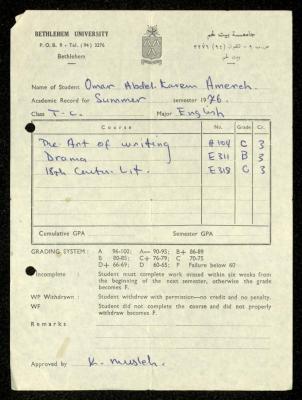 BETHLEHEM UNIVERSITY
P. O. B. 9 - Tel. (94) 3276
Bethlehem
جامعة بيت لحم
ص.ب ٩ - تلفون (٩٤) ٣٢٧٦
بيت لحم
Name of Student Omar Abdel Kareem Amereh.
Academic Record for Summer semester 1976.
Class T-C. Major English
Course No. Grade Cr.
The Art of writing #104 C 3
Drama E311 B 3
18th Centur. Lit. E318 C 3
Cumulative GPA Semester GPA
GRADING SYSTEM: A 96-102; A— 90-95; B+ 86-89
B 80-85; C+ 76-79; C 70-75
D+ 66-69; D 60-65; F Failure below 60
Incomplete : Student must complete work missed within six weeks from
the beginning of the next semester, otherwise the grade
becomes F.
WP Withdrawn : Student withdrew with permission—no credit and no penalty.
WF Student did not complete the course and did not properly
withdraw becomes F.
Remarks
Approved by K. Musleh.